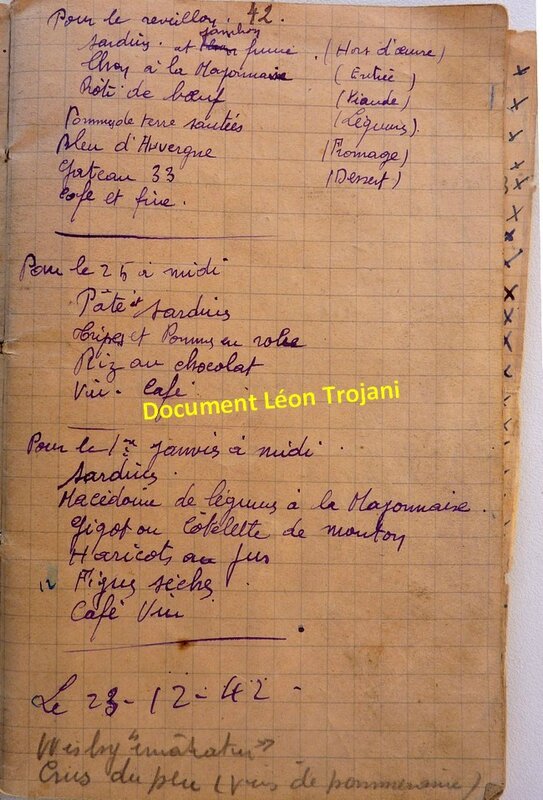 Pour le reveillon. 42.
Sardin. et jambon fumé. (Hors d'œuvre)
Thon à la Mayonnaise (Entrée)
Rôti de bœuf (Viande)
Pommes de terre sautées (Légumes).
Bleu d'Auvergne (Fromage)
Gateau 33 (Dessert)
Café et fine.
Pour le 25 à midi
Pâté et Sardines
Tripes et Pommes en robe
Riz au chocolat
Vin. Café
Document Léon Trojani
Pour le 1er Janvier à midi.
Sardines.
Macédoine de légumes à la Mayonnaise.
Gigot ou Côtelette de mouton
Haricots au jus
12 Figues sèches
Café Vin
Le 23-12-42-
Crus du (Vins de